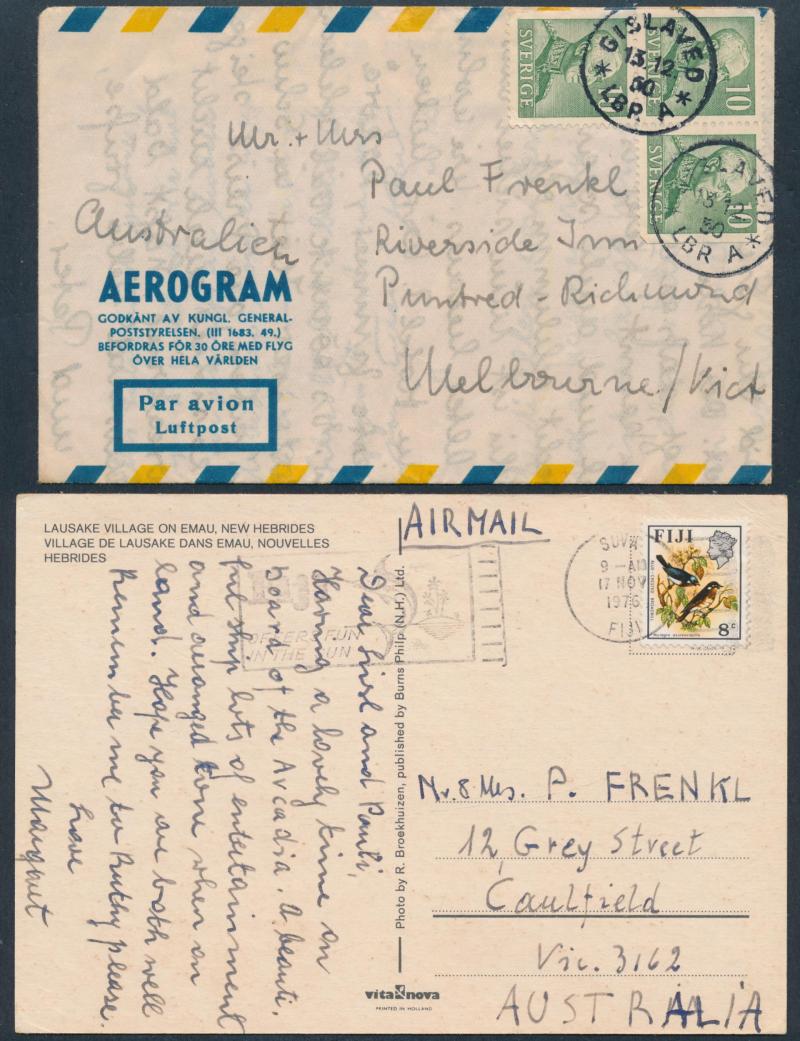 SVERIGE
10
SVERIGE
10
SVERIGE
10
GISLAVED
13.12.
50
* LBR A *
13.12
50
LBR A *
Mr. + Mrs
Paul Frenkl
Australien
Riverside Inn
Puntred-Richmond
Melbourne/Vict
AEROGRAM
GODKÄNT AV KUNGL. GENERAL-
POSTSTYRELSEN. (III 1683. 49.)
BEFORDRAS FÖR 30 ÖRE MED FLYG
ÖVER HELA VÄRLDEN
Par avion
Luftpost
LAUSAKE VILLAGE ON EMAU, NEW HEBRIDES
VILLAGE DE LAUSAKE DANS EMAU, NOUVELLES
HEBRIDES
AIRMAIL
SUVA
9 - AM
17 NOV
1976
FIJI
FIJI
8c
OFFERS FUN
IN THE SUN
Dear and Pauli,
Having a lovely time on
board of the Arcadia. A beauti-
ful ship lots of entertainment
and arranged tour when on
land. Hope you are both well
Remember me to Ruthy please.
Love
Margaret
Photo by R. Broekhuizen, published by Burns Philp (N.H.) Ltd.
Mr. & Mrs. P. FRENKL
12, Grey Street
Caulfield
Vic. 3162
AUSTRALIA
vita nova
PRINTED IN HOLLAND